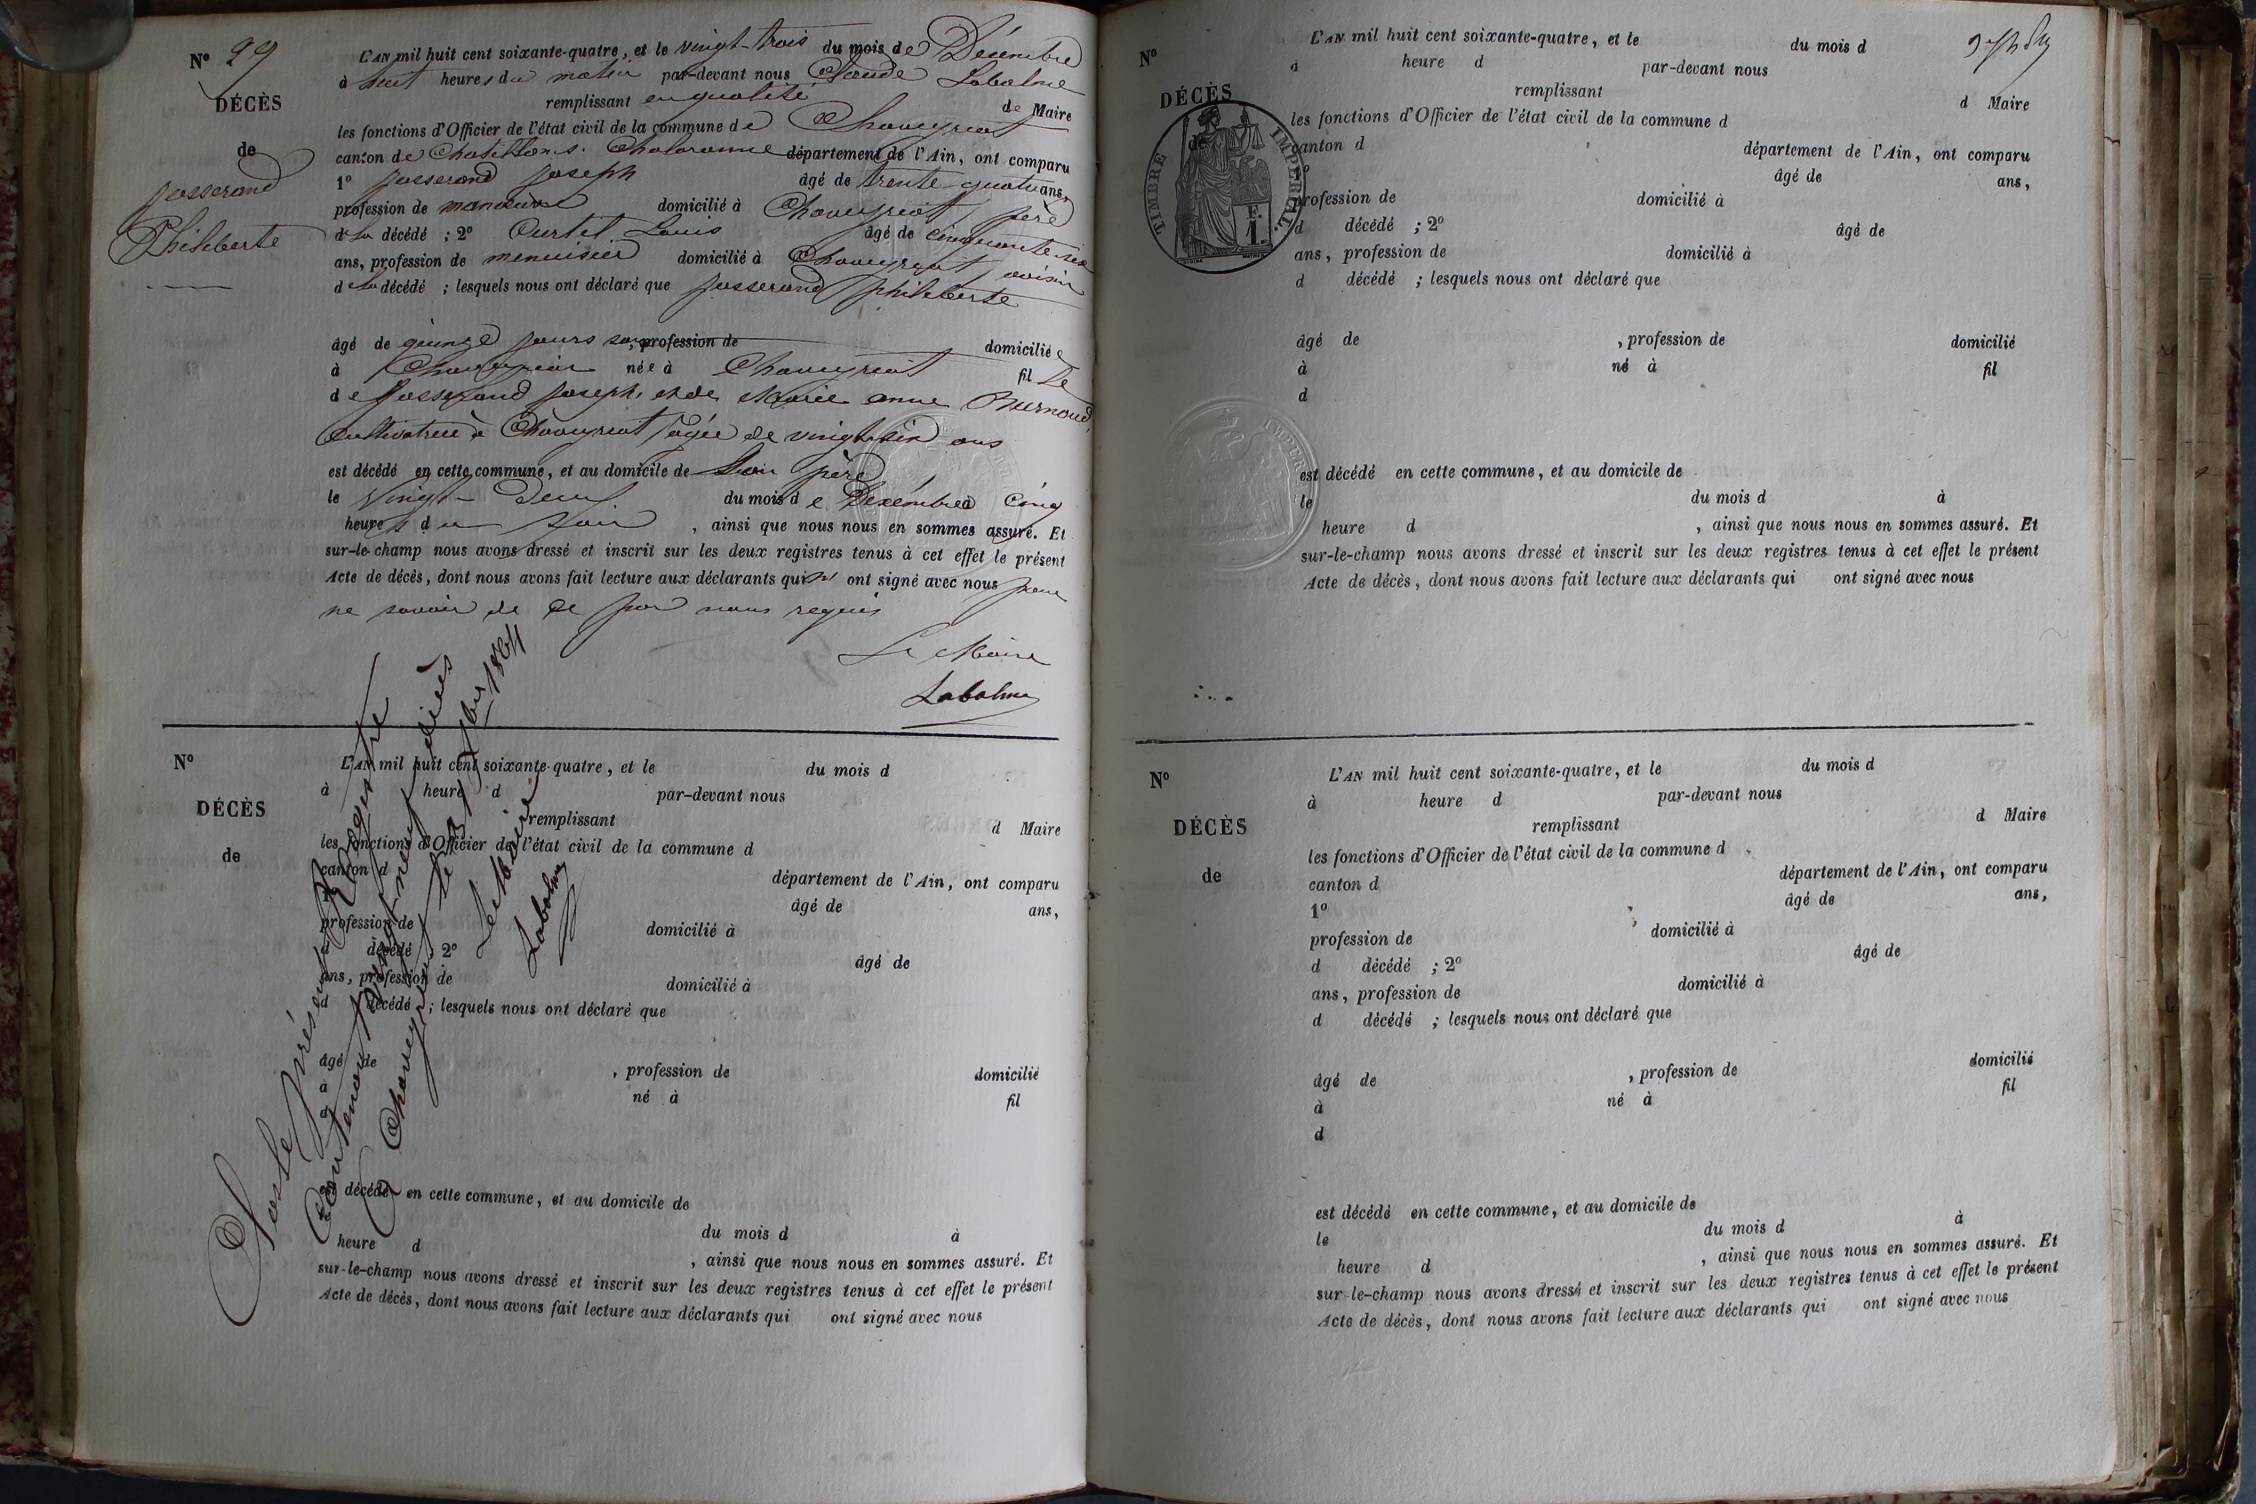 N° 29
DÉCÈS
de
Josserand
Philiberte
L'AN mil huit cent soixante-quatre, et le vingt-trois du mois de Décembre
à huit heures du matin par-devant nous Claude Labalme
remplissant en qualité de Maire
les fonctions d'Officier de l'état civil de la commune de Chaveyriat
canton de Chatillon s. Chalaronne département de l'Ain, ont comparu
1° Josserand Joseph âgé de trente-quatre ans,
profession de manœuvre domicilié à Chaveyriat, père
de la décédé ; 2° Curtet Louis âgé de cinquante-six
ans, profession de menuisier domicilié à Chaveyriat, voisin
de la décédé ; lesquels nous ont déclaré que Josserand Philiberte
âgé de quinze jours sans, profession de domiciliée
à Chaveyriat née à Chaveyriat fille
de Josserand Joseph, et de Marie anne
cultivatrice à Chaveyriat, âgée de vingt six ans
est décédé en cette commune, et au domicile de son père
le vingt-deux du mois de Décembre à cinq
heures du soir, ainsi que nous nous en sommes assuré. Et
sur-le-champ nous avons dressé et inscrit sur les deux registres tenus à cet effet le présent
Acte de décès, dont nous avons fait lecture aux déclarants qui n' ont signé avec nous pour
ne savoir de ce par nous requis
Le Maire
Labalme
N°
DÉCÈS
de
L'AN mil huit cent soixante-quatre, et le du mois d
à heure d par-devant nous
remplissant d Maire
les fonctions d'Officier de l'état civil de la commune d
canton d département de l'Ain, ont comparu
1° âgé de ans,
profession de domicilié à
d décédé 2° âgé de
ans, profession de domicilié à
d décédé ; lesquels nous ont déclaré que
âgé de , profession de domicilié
à né à fil
d
est décédé en cette commune, et au domicile de
du mois d à
heure d , ainsi que nous nous en sommes assuré. Et
sur-le-champ nous avons dressé et inscrit sur les deux registres tenus à cet effet le présent
Acte de décès, dont nous avons fait lecture aux déclarants qui ont signé avec nous
le présent Registre
Contenant vingt neuf décès
Chaveyriat le 31 Xbre 1864
Le Maire
Labalme
N°
DÉCÈS
de
TIMBRE IMPÉRIAL
F.
1.
L'AN mil huit cent soixante-quatre, et le du mois d
à heure d par-devant nous
remplissant d Maire
les fonctions d'Officier de l'état civil de la commune d
canton d département de l'Ain, ont comparu
âgé de ans,
profession de domicilié à
d décédé ; 2° âgé de
ans, profession de domicilié à
d décédé ; lesquels nous ont déclaré que
âgé de , profession de domicilié
à né à fil
d
est décédé en cette commune, et au domicile de
le du mois d à
heure d , ainsi que nous nous en sommes assuré. Et
sur-le-champ nous avons dressé et inscrit sur les deux registres tenus à cet effet le présent
Acte de décès, dont nous avons fait lecture aux déclarants qui ont signé avec nous
N°
DÉCÈS
de
L'AN mil huit cent soixante-quatre, et le du mois d
à heure d par-devant nous
remplissant d Maire
les fonctions d'Officier de l'état civil de la commune d
canton d département de l'Ain, ont comparu
1° âgé de ans,
profession de domicilié à
d décédé ; 2° âgé de
ans, profession de domicilié à
d décédé ; lesquels nous ont déclaré que
âgé de , profession de domicilié
à né à fil
d
est décédé en cette commune, et au domicile de
le du mois d à
heure d , ainsi que nous nous en sommes assuré. Et
sur-le-champ nous avons dressé et inscrit sur les deux registres tenus à cet effet le présent
Acte de décès, dont nous avons fait lecture aux déclarants qui ont signé avec nous